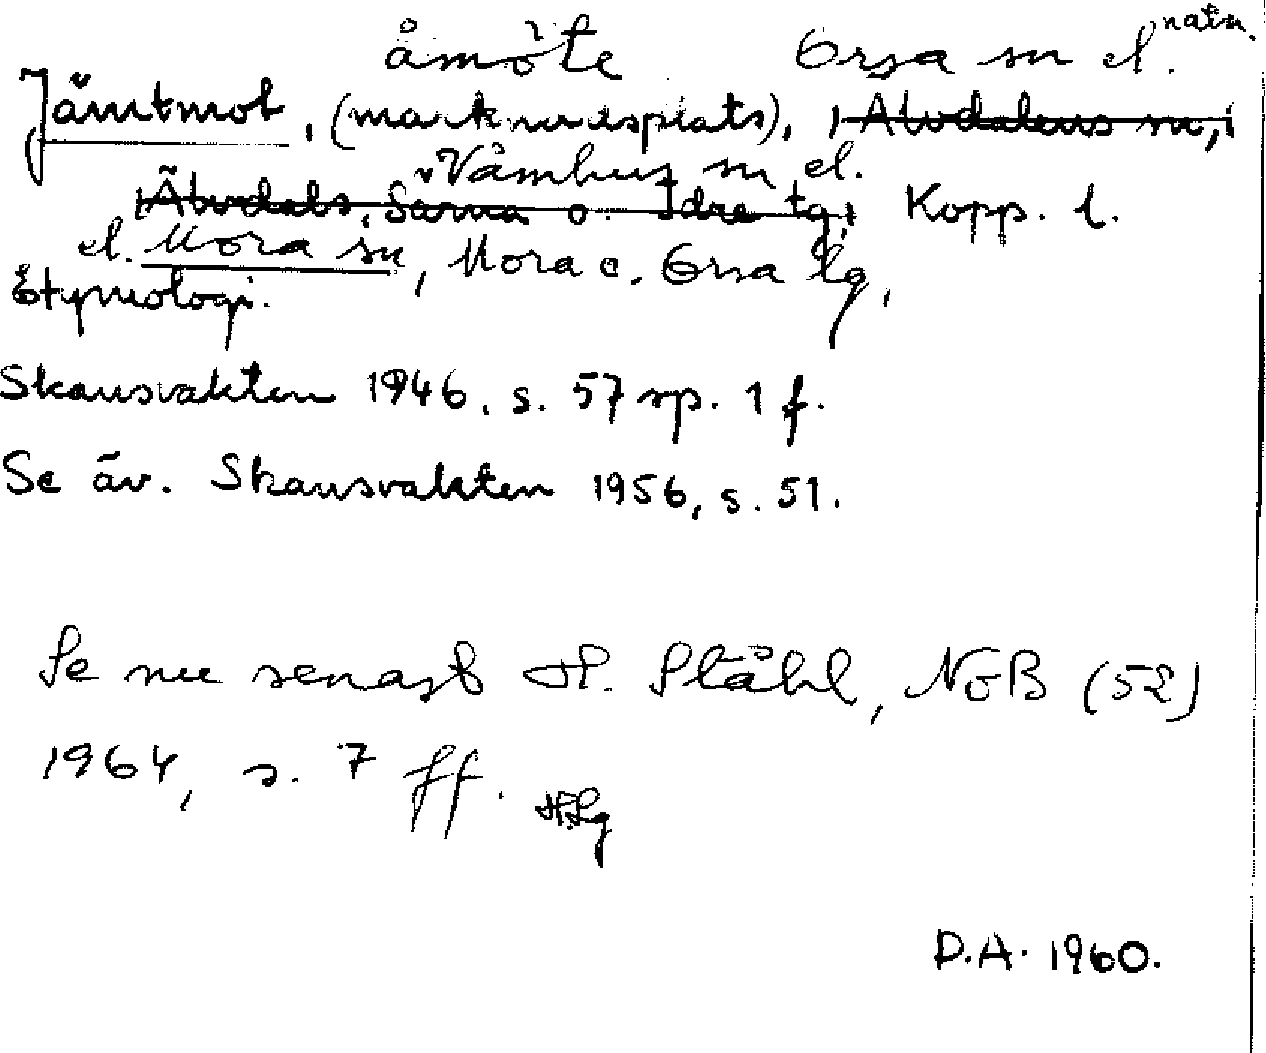 åmöte Orsa sn el. natn.
Jämtmot, (marknadsplats), Älvdalens sn,
Våmhus sn el.
Älvdals, Särna o. Idre tg, Kopp. l.
el. Mora sn, Mora o. Orsa tg,
Etymologi.
Skansvakten 1946, s. 57 sp. 1 f.
Se äv. Skansvakten 1956, s. 51.
Se nu senast H. Ståhl, NoB (52)
1964, s. 7 ff.
D.A. 1960.